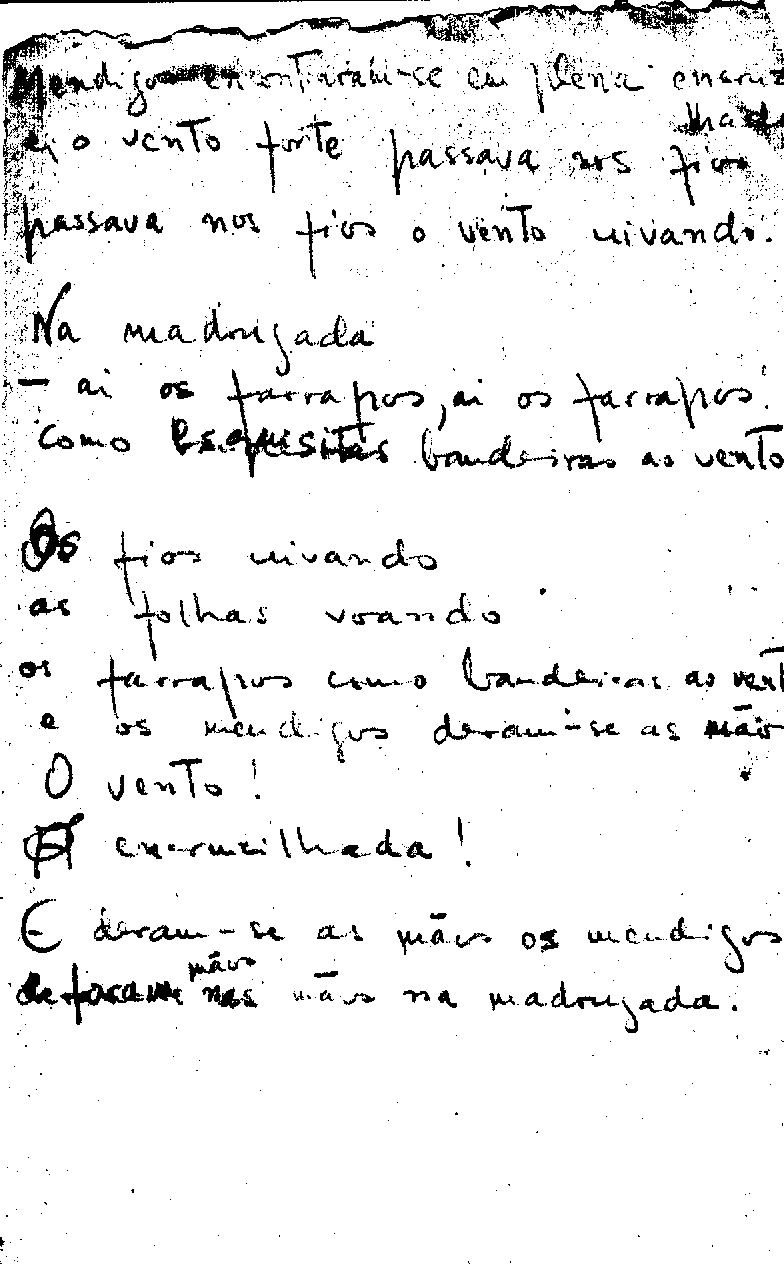 Mendigos encontraram-se em plena encruz
lhada
e o vento forte passava nos fios
passava nos fios o vento uivando.
Na madrugada
— ai os farrapos, ai os farrapos!
como esquisitas bandeiras ao vento
Os fios uivando
as folhas voando
os farrapos como bandeiras ao vent
e os mendigos deram-se as mão
O vento!
A encruzilhada!
E deram-se as mãos os mendigos
mãos
nas mãos na madrugada.